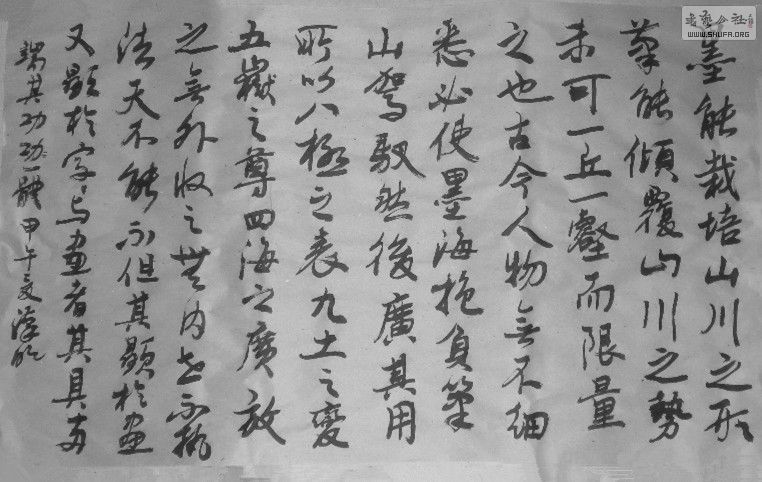 墨能栽培山川之形
筆能傾覆山川之勢
未可一丘一壑而限量
之也古今人物無不細
悉必使墨海抱負筆
山駕馭然後廣其用
所以八極之表九土之變
五嶽之尊四海之廣放
之無外收之無內世不執
法天不能不但其顯於畫
又顯於字字与畫者其具兩
端其功一體甲午夏
書艺公社
WWW.SHUFA.ORG